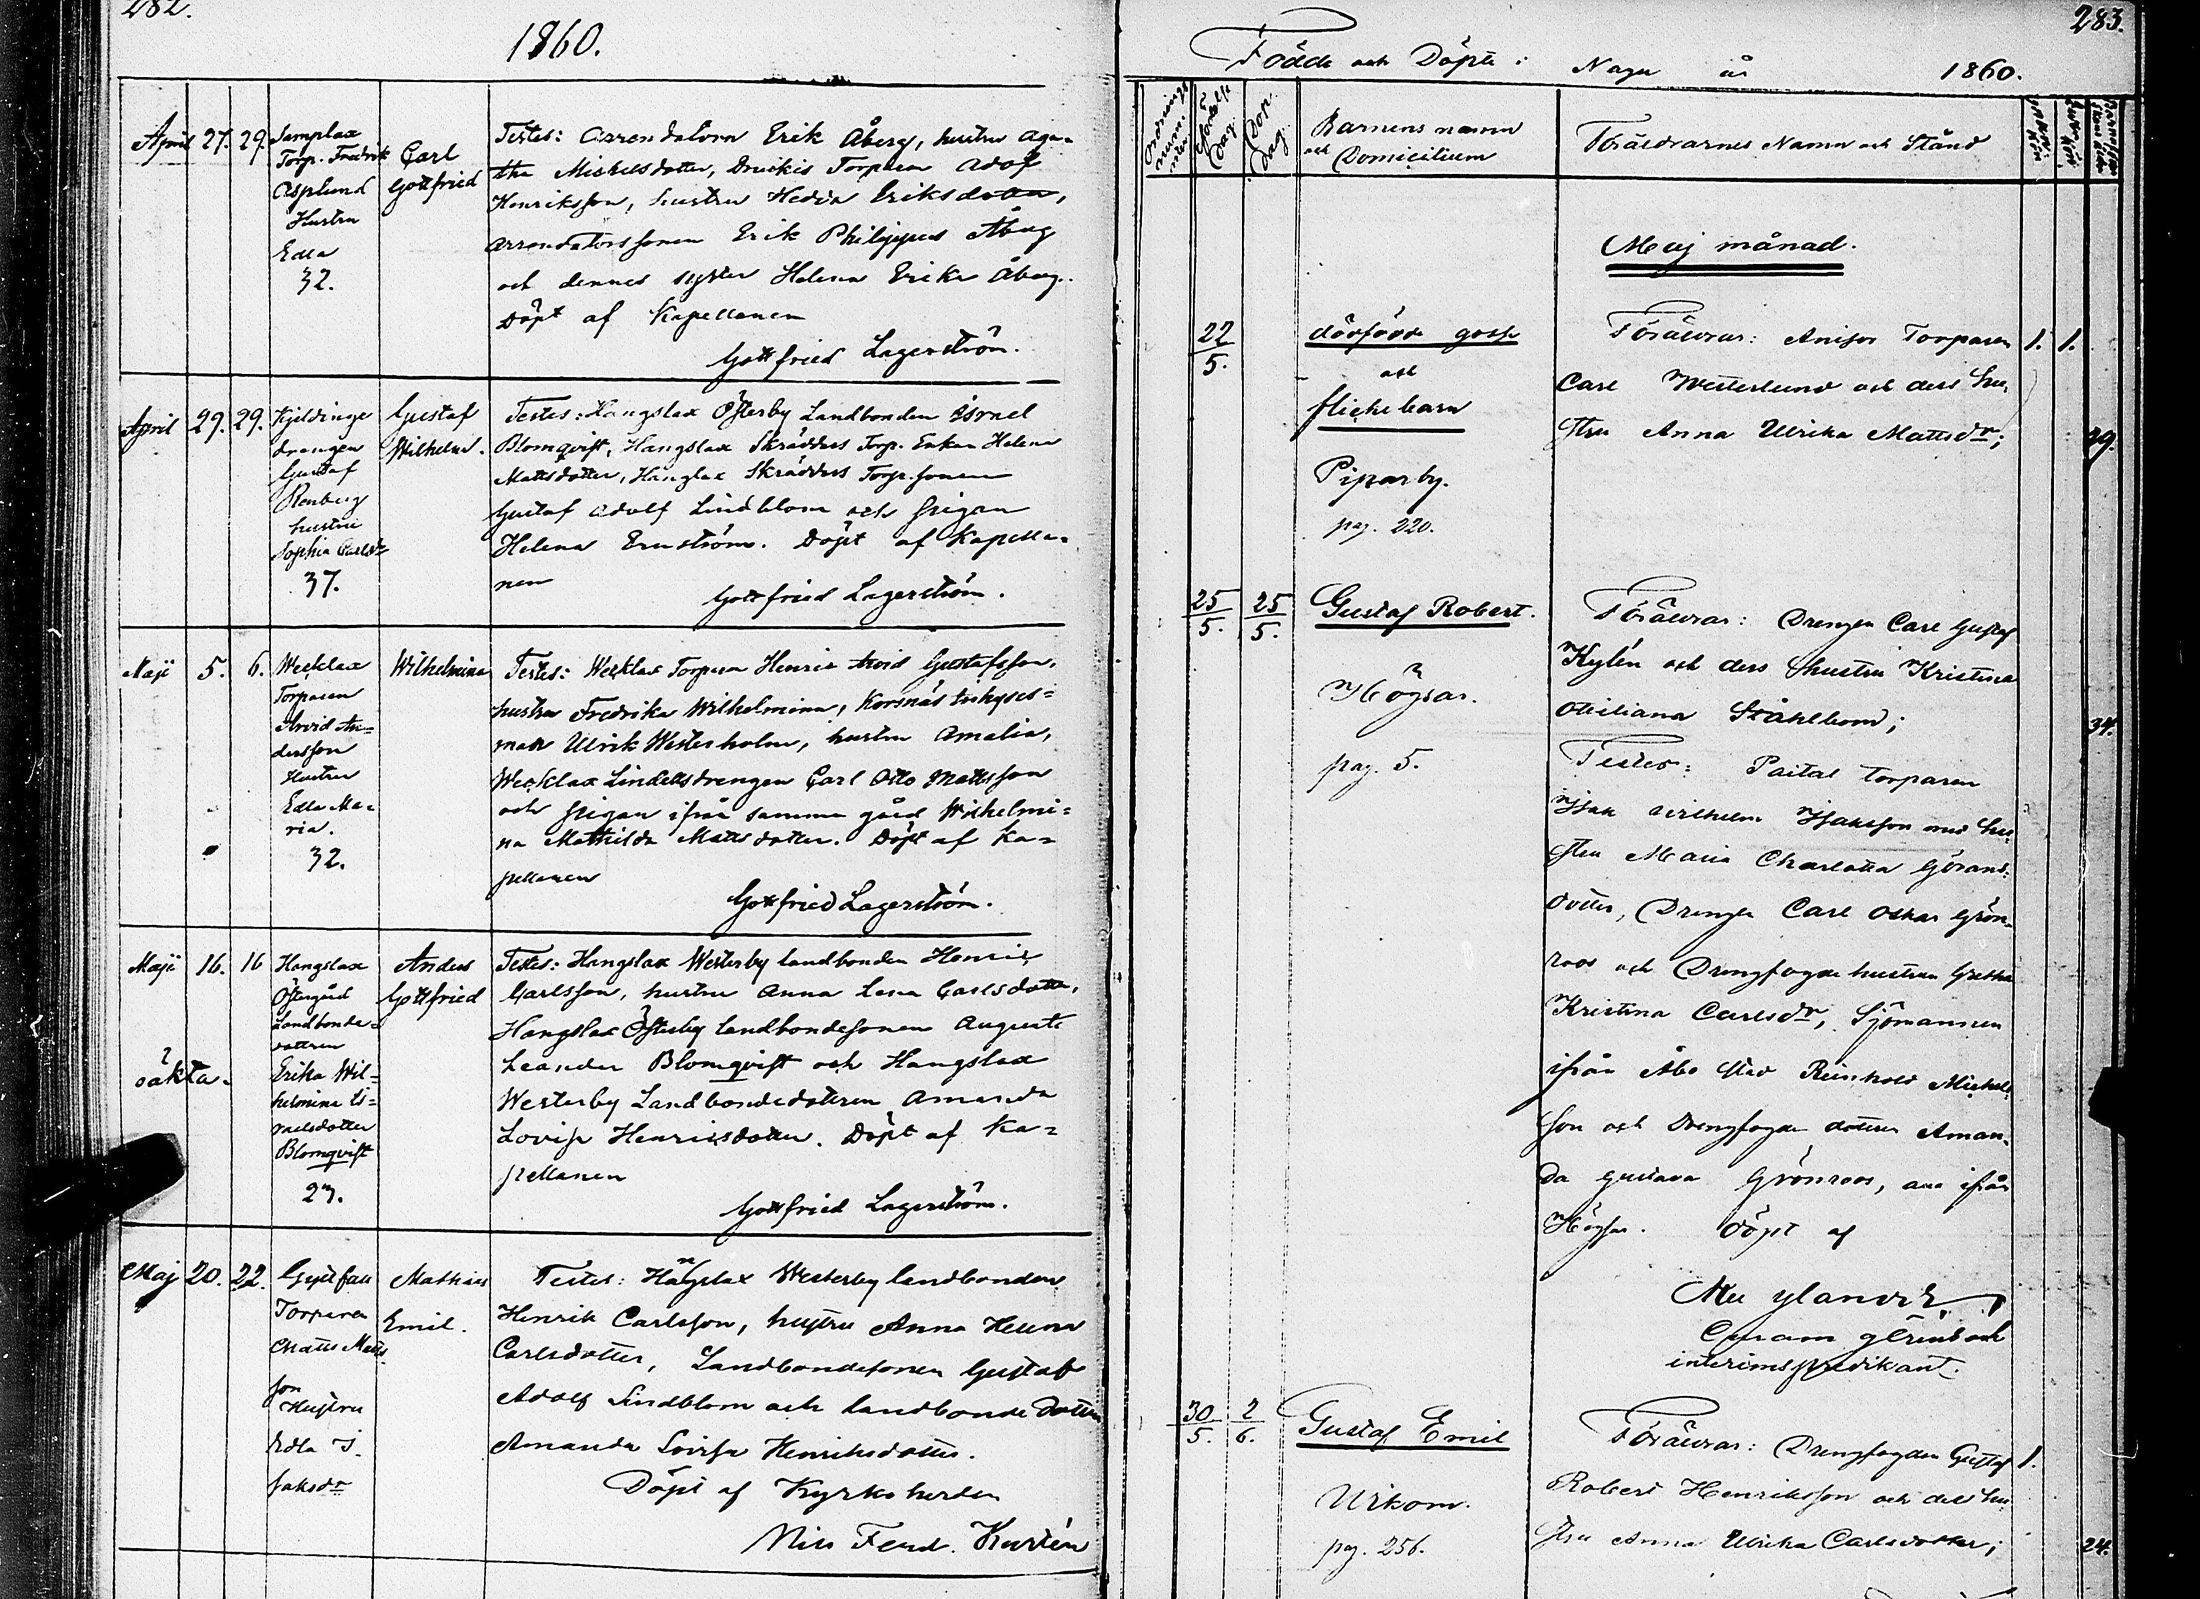 282.
1860.
April 27. 29. Samplax
Torp. Fredrik
Asplund
Hustru
Edla
32.
Carl
Gottfried
Testes: Arrendatorn Erik Åberg, hustru Aga-
tha Mickelsdotter, Druckis Torparen Adolf
Henriksson, hustru Hedda Eriksdotter,
Arrendatorssonen Erik Philippus Åberg
och dennes syster Helena Erika Åberg.
Döpt af Kapellanen
Gottfried Lagerström.
April 29. 29. Kjeldinge
drengen
Gustaf
Renberg
hustru
Sophia Carlsdr
37.
Gustaf
Wilhelm.
Testes: Hangslax Österby Landbonden Israel
Blomqvist, Hangslax Skrädders Torp. Enkan Helena
Mattsdotter, Hangslax Skrädders Torp.sonen
Gustaf Adolf Lindblom och pigan
Helena Ernström. Döpt af Kapella-
nen
Gottfried Lagerström.
Maji 5. 6. Weeklax
Torparen
Arvid An-
dersson
Hustru
Edla Ma-
ria.
32.
Wilhelmina
Testes: Weeklax Torparen Henric Arvid Gustafsson,
hustru Fredrika Wilhelmina, Korsnäs Inhyses-
man Ulrik Westerholm, hustru Amalia,
Weeklax Lindellsdrengen Carl Otto Mattsson
och pigan ifrån samma gård Wilhelmi-
na Mathilda Mattsdotter. Döpt af Ka-
pellanen
Gottfried Lagerström.
Maji 16. 16 Hangslax
Östergård
Landbonde-
dottren
Erika Wil-
helmina Is-
raelsdotter
Blomqvist
23.
oäkta.
Anders
Gottfried
Testes: Hangslax Westerby landbonden Henric
Carlsson, hustru Anna Lena Carlsdotter,
Hangslax Österby landbondesonen August
Leander Blomqvist och Hangslax
Westerby Landbondedottren Amanda
Lovisa Henricsdotter. Döpt af Ka-
pellanen
Gottfried Lagerström.
Maj 20. 22.
Torparen
Matts Matts-
son
Hustru
Edla I-
saksdr
Mathias
Emil.
Testes: Hangslax Westerby landbonden
Henrik Carlsson, hustru Anna Helena
Carlsdotter, Landbondesonen Gustaf
Adolf Lindblom och landbonde dottren
Amanda Lovisa Henriksdotter.
Döpt af Kyrkoherden
Nils Ferd. Kurtén
283.
Födde och Döpte i Nagu år 1860.
Ordnings
num-
mer
Födelse
Dag.
Dop.
Dag.
Barnens namn
och Domicilium
Föräldrarnes Namn och Stånd
Maj månad.
22/5.
dödfödd gosse
och
flickebarn
Piparby.
pag. 220.
Föräldrar: Anisor Torparen
Carl Westerlund och dess hu-
stru Anna Ulrika Mattsdr;
1. 1.
29.
25/5. 25/5.
Gustaf Robert.
Högsar.
pag. 5.
Föräldrar: Drengen Carl Gustaf
Kylén och dess hustru Kristina
Otiliana Ståhlbom;
34.
Testes: Paital torparen
Isak Wilhelm Isaksson med hu-
stru Maria Charlotta Görans-
dotter, Drengen Carl Oskar Grön-
roos och Drengfogde hustrun Gretha
Kristina Carlsdr, Sjömannen
ifrån Åbo stad Reinhold Mickels-
son och Drengfogde dottren Aman-
da Gustava Grönroos, alla ifrån
Högsar. Döpt af
interimspredikant.
30/5. 2/6.
Gustaf Emil
Wikom.
pag. 256.
Föräldrar: Drengfogden Gustaf
Robert Henriksson och dess hu-
stru Anna Ulrika Carlsdotter;
1.
24.